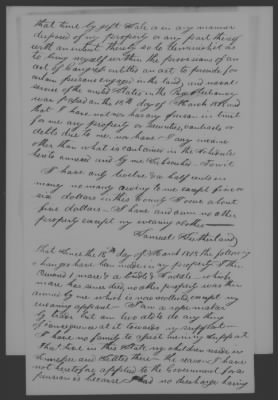 that time by gift Sale or in any manner
disposed of my property or any part thereof
with an intent thereby so to diminish it as
to bring myself within the provisions of an
act of Congress entitled an act to provide for
certain persons engaged in the land and naval
service of the united States in the Revolutionary
war passed on the 18th day of March 1818 and
that I have not nor has any person in trust
for me any property or securities, contracts or
debts due to me, nor have I any income
other than what is contained in the Schedule
hereto annexed and by me Subscribed. Towit
I have only twelve and a half cents in
money no money owing to me except five or
six dollars in this County I owe about
five dollars. I have and own no other
property except my wearing clothes
Samuel Sutherland
that since the 18th day of March 1818 the following
changes have been made in my property. I then
owned 1 mare & a bridle & Saddle which
mare has since died, no other property was then
owned by me which is now recollected, except my
wearing apparel I am a rope maker
by trade but am not able to do any thing
of consequence at it towards my support
I have no family to assist me in my support
that live in this State my children reside in
Tennessee and settled there the reason I have
not heretofore applied to the Government for a
pension is because I had no discharge having